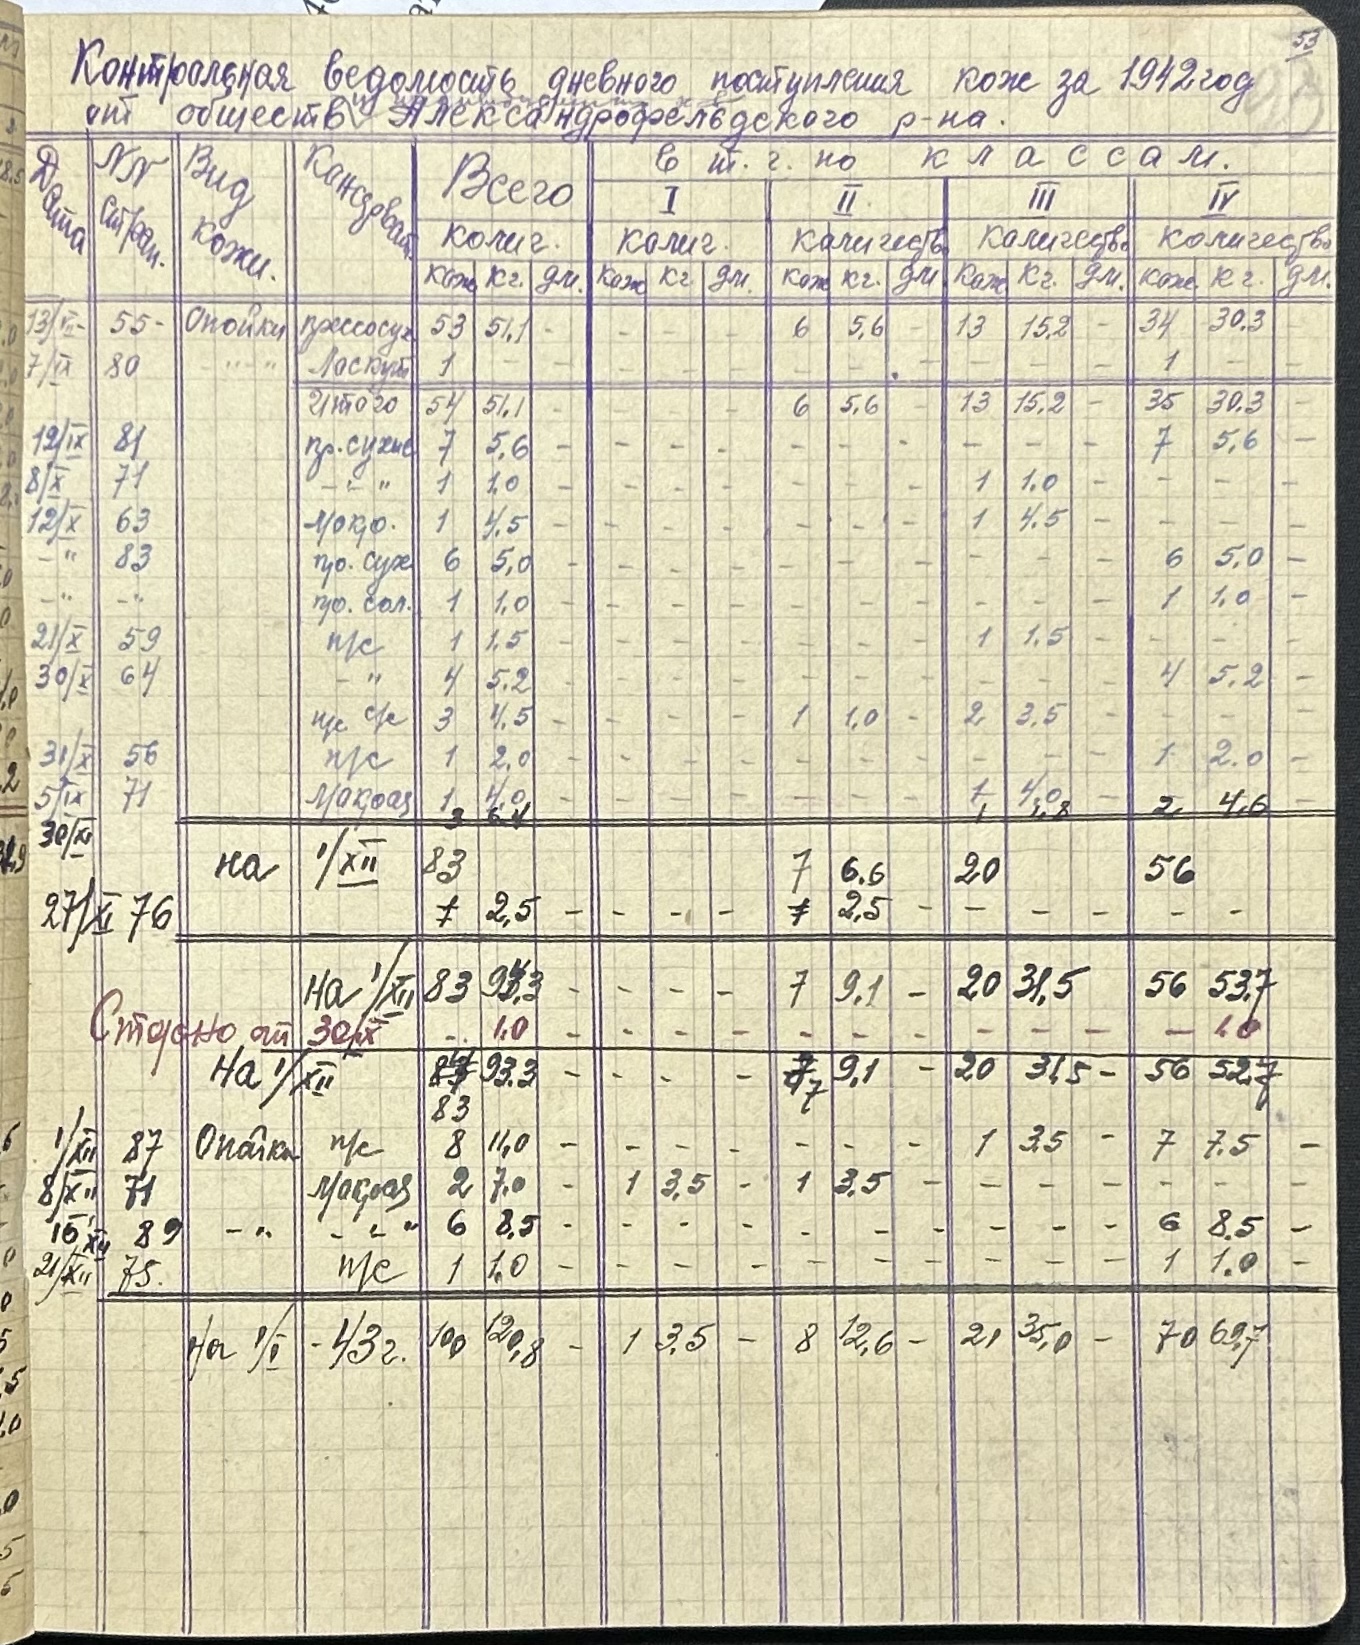 53
Контрольная ведомость дневного поступления кож за 1942 год
от обществ Александрофельдского р-на.
Дата NN стран. Вид кожи. Всего В т. ч. по классам.
I II III IV
колич. колич. количеств. количество количество
кож кг. дм. кож кг дм. кож кг. дм. кож кг. дм. кож кг. дм.
55 - Опойки 53 51,1 - - - - 6 5,6 - 13 15,2 - 34 30.3 -
7/IX 80 - " - " Лоскут 1 - - - - - - - - - - - 1 - -
Итого 54 51,1 - - - - 6 5,6 - 13 15,2 - 35 30.3 -
12/IX 81 пр. сухие 7 5,6 - - - - - - - - - - 7 5,6 -
8/X 71 - " - " 1 1.0 - - - - - - - 1 1.0 - - - -
12/X 63 мокр. 1 4.5 - - - - - - - 1 4.5 - - - -
- " 83 пр. сух 6 5,0 - - - - - - - - - - 6 5,0 -
- " - " пр. сол. 1 1,0 - - - - - - - - - - 1 1.0 -
21/X 59 п/с 1 1.5 - - - - - - - 1 1.5 - - - -
30/X 64 - " 4 5.2 - - - - - - - - - - 4 5.2 -
3 4.5 - - - - 1 1,0 - 2 3.5 - - - -
31/X 56 п/с 1 2.0 - - - - - - - - - - 1 2.0 -
5/IX 71 мокрая 1 4.0 - - - - - - - 1 4,0 - - - -
30/XI 3 6.4 1 1,8 2 4,6
на 1/XII 83 7 6.6 20 56
27/XI 76 1 2,5 - - - - 1 2,5 - - - - - -
На 1/XII 83 - - - - 7 9,1 - 20 31,5 56 53,7
Сторно от 30/X - 1.0 - - - - - - - - - - - 1.0
На 1/XII 83 93.3 - - - - 7 9,1 - 20 31,5 - 56 52,7
83
1/XII 87 Опойки п/с 8 11,0 - - - - - - - 1 3.5 - 7 7.5 -
8/XII 71 мокрая 2 7.0 - 1 3,5 - 1 3.5 - - - - - - -
16/XII 89 - " - " - " 6 8,5 - - - - - - - - - - 6 8.5 -
21/XII 75. п/с 1 1,0 - - - - - - - - - - 1 1.0 -
На 1/I - 43 г. 100 120,8 - 1 3.5 - 8 12,6 - 21 35,0 - 70 69,7